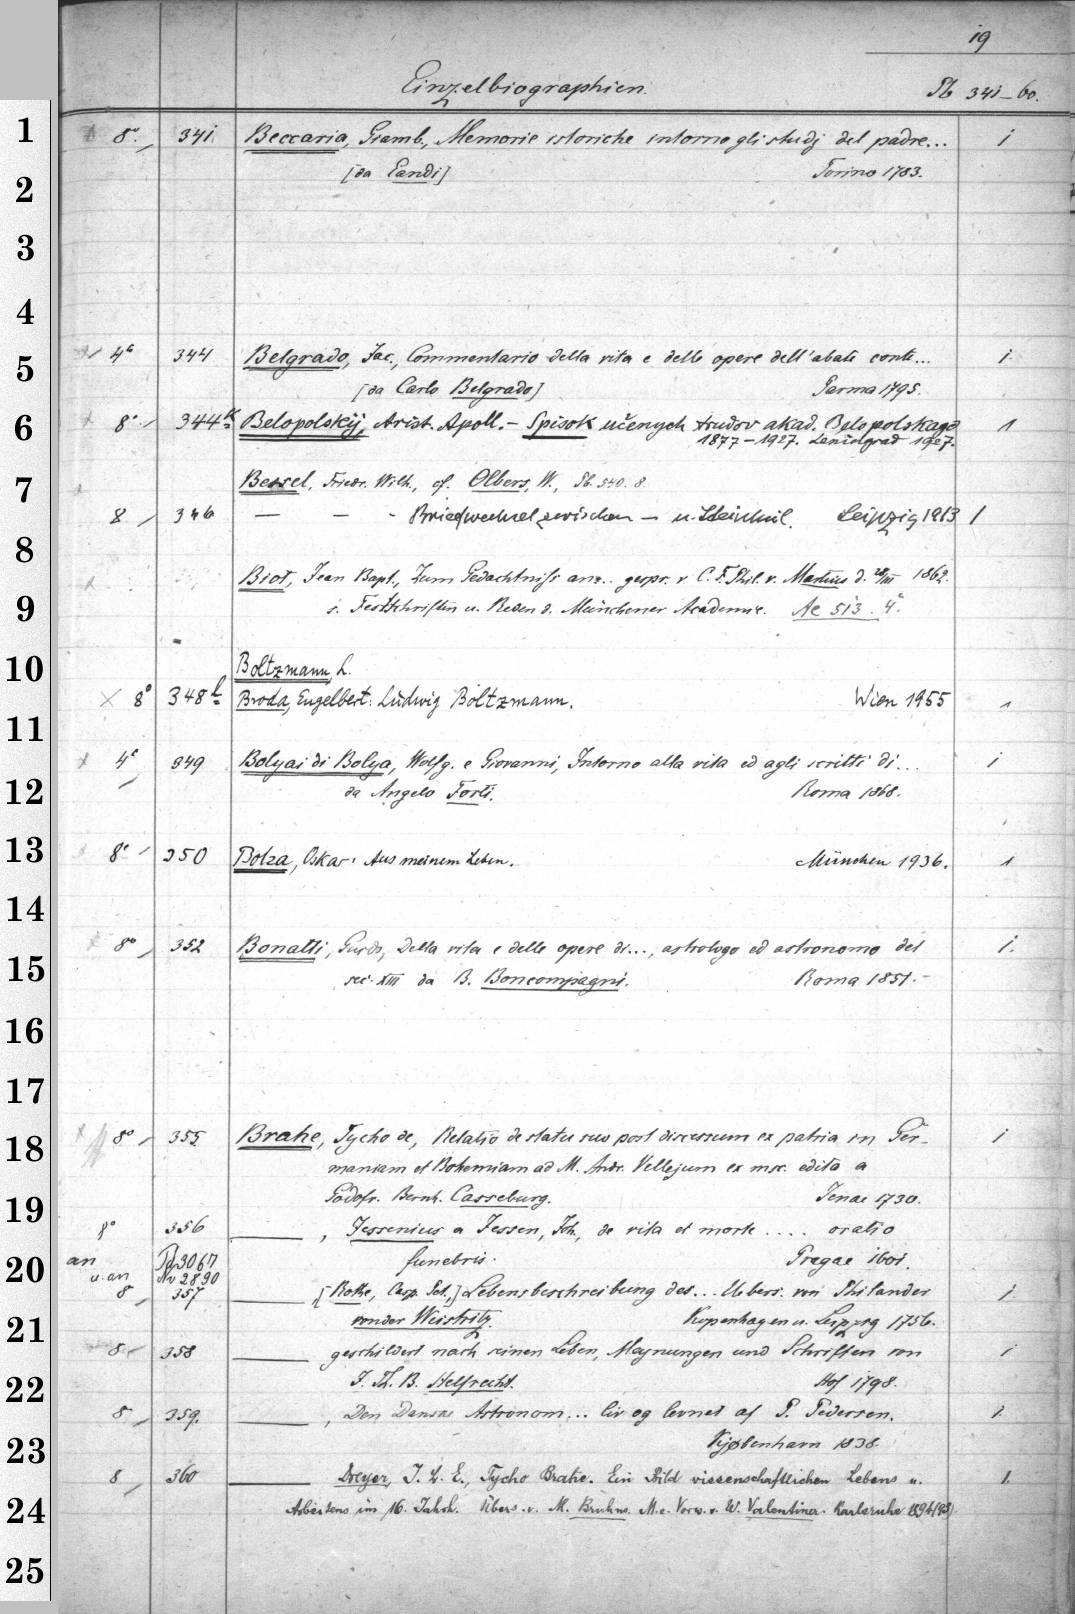 19
Einzelbiographien. Pb 341-60.
1
8°. 341. Beccaria, Giamb., Memorie istoriche intorno gli studj del padre... 1
2
[da Eandi] Torino 1783.
3
4
4° 344 Belgrado, Jac., Commentario della vita e delle opere dell'abate conte... 1.
5
[da Carlo Belgrado] Parma 1795.
6
8° 344k Belopolskij, Arist. Apoll. - Spisok učenych trudov akad. Belopolskago 1
1877-1927. Leningrad 1927.
7
Bessel, Friedr. Wilh., cf. Olbers, W., Pb. 540. 8.
8 346 — — - Briefwechsel zwischen — u. Steinheil. Leipzig 1913 1
8
Biot, Jean Bapt., Zum Gedächtniss an... gespr. v. C. F. Phil. v. Martius d. 28/III 1862.
9
s. Festschriften u. Reden d. Münchener Academie. Ae 513. 4°.
10
Boltzmann, L.
× 8° 348b Broda, Engelbert: Ludwig Boltzmann. Wien 1955 1
11
4° 349 Bolyai di Bolya, Wolfg. e Giovanni, Intorno alla vita ed agli scritti di... 1
12
da Angelo Forti. Roma 1868.
13
8° 350 Bolza, Oskar: Aus meinem Leben. München 1936. 1
14
8° 352 Bonatti, Guido, Della vita e delle opere di..., astrologo ed astronomo del 1.
15
sec. XIII da B. Boncompagni. Roma 1851.-
16
17
18
8° 355 Brahe, Tycho de, Relatio de statu suo post discessum ex patria in Ger- 1
maniam et Bohemiam ad M. Andr. Vellejum ex msc. edita a
19
Godofr. Bernh. Casseburg. Jenae 1730.
8° 356 ——, Jessenius a Jessen, Joh., de vita et morte .... oratio
20
an funebris. Pragae 1601.
u. an 2890
8 357 —— [Rothe, Casp. Pet.] Lebensbeschreibung des... Uebers. von Philander 1
21
von der Weistritz. Kopenhagen u. Leipzig 1756.
8 358 —— geschildert nach seinen Leben, Meynungen und Schriften von 1
22
J. Th. B. Helfrecht. Hof 1798.
8 359. ——, Den Danske Astronom... liv og levnet af P. Pedersen. 1.
23
Kjøbenhavn 1838.
8 360 —— Dreyer, J. L. E., Tycho Brahe. Ein Bild wissenschaftlichen Lebens u. 1.
24
Arbeitens im 16. Jahrh. Übers. v. M. Bruhns. M. e. Vorw. v. W. Valentiner. Karlsruhe 1894(93)
25